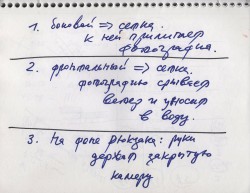 1. боковой => сетка.
к ней прилипает
фотография.
2. фронтальный => сетка.
фотографию срывает
ветер и уносит
в воду.
3. На фоне рюкзака: руки
держат закрытую
камеру